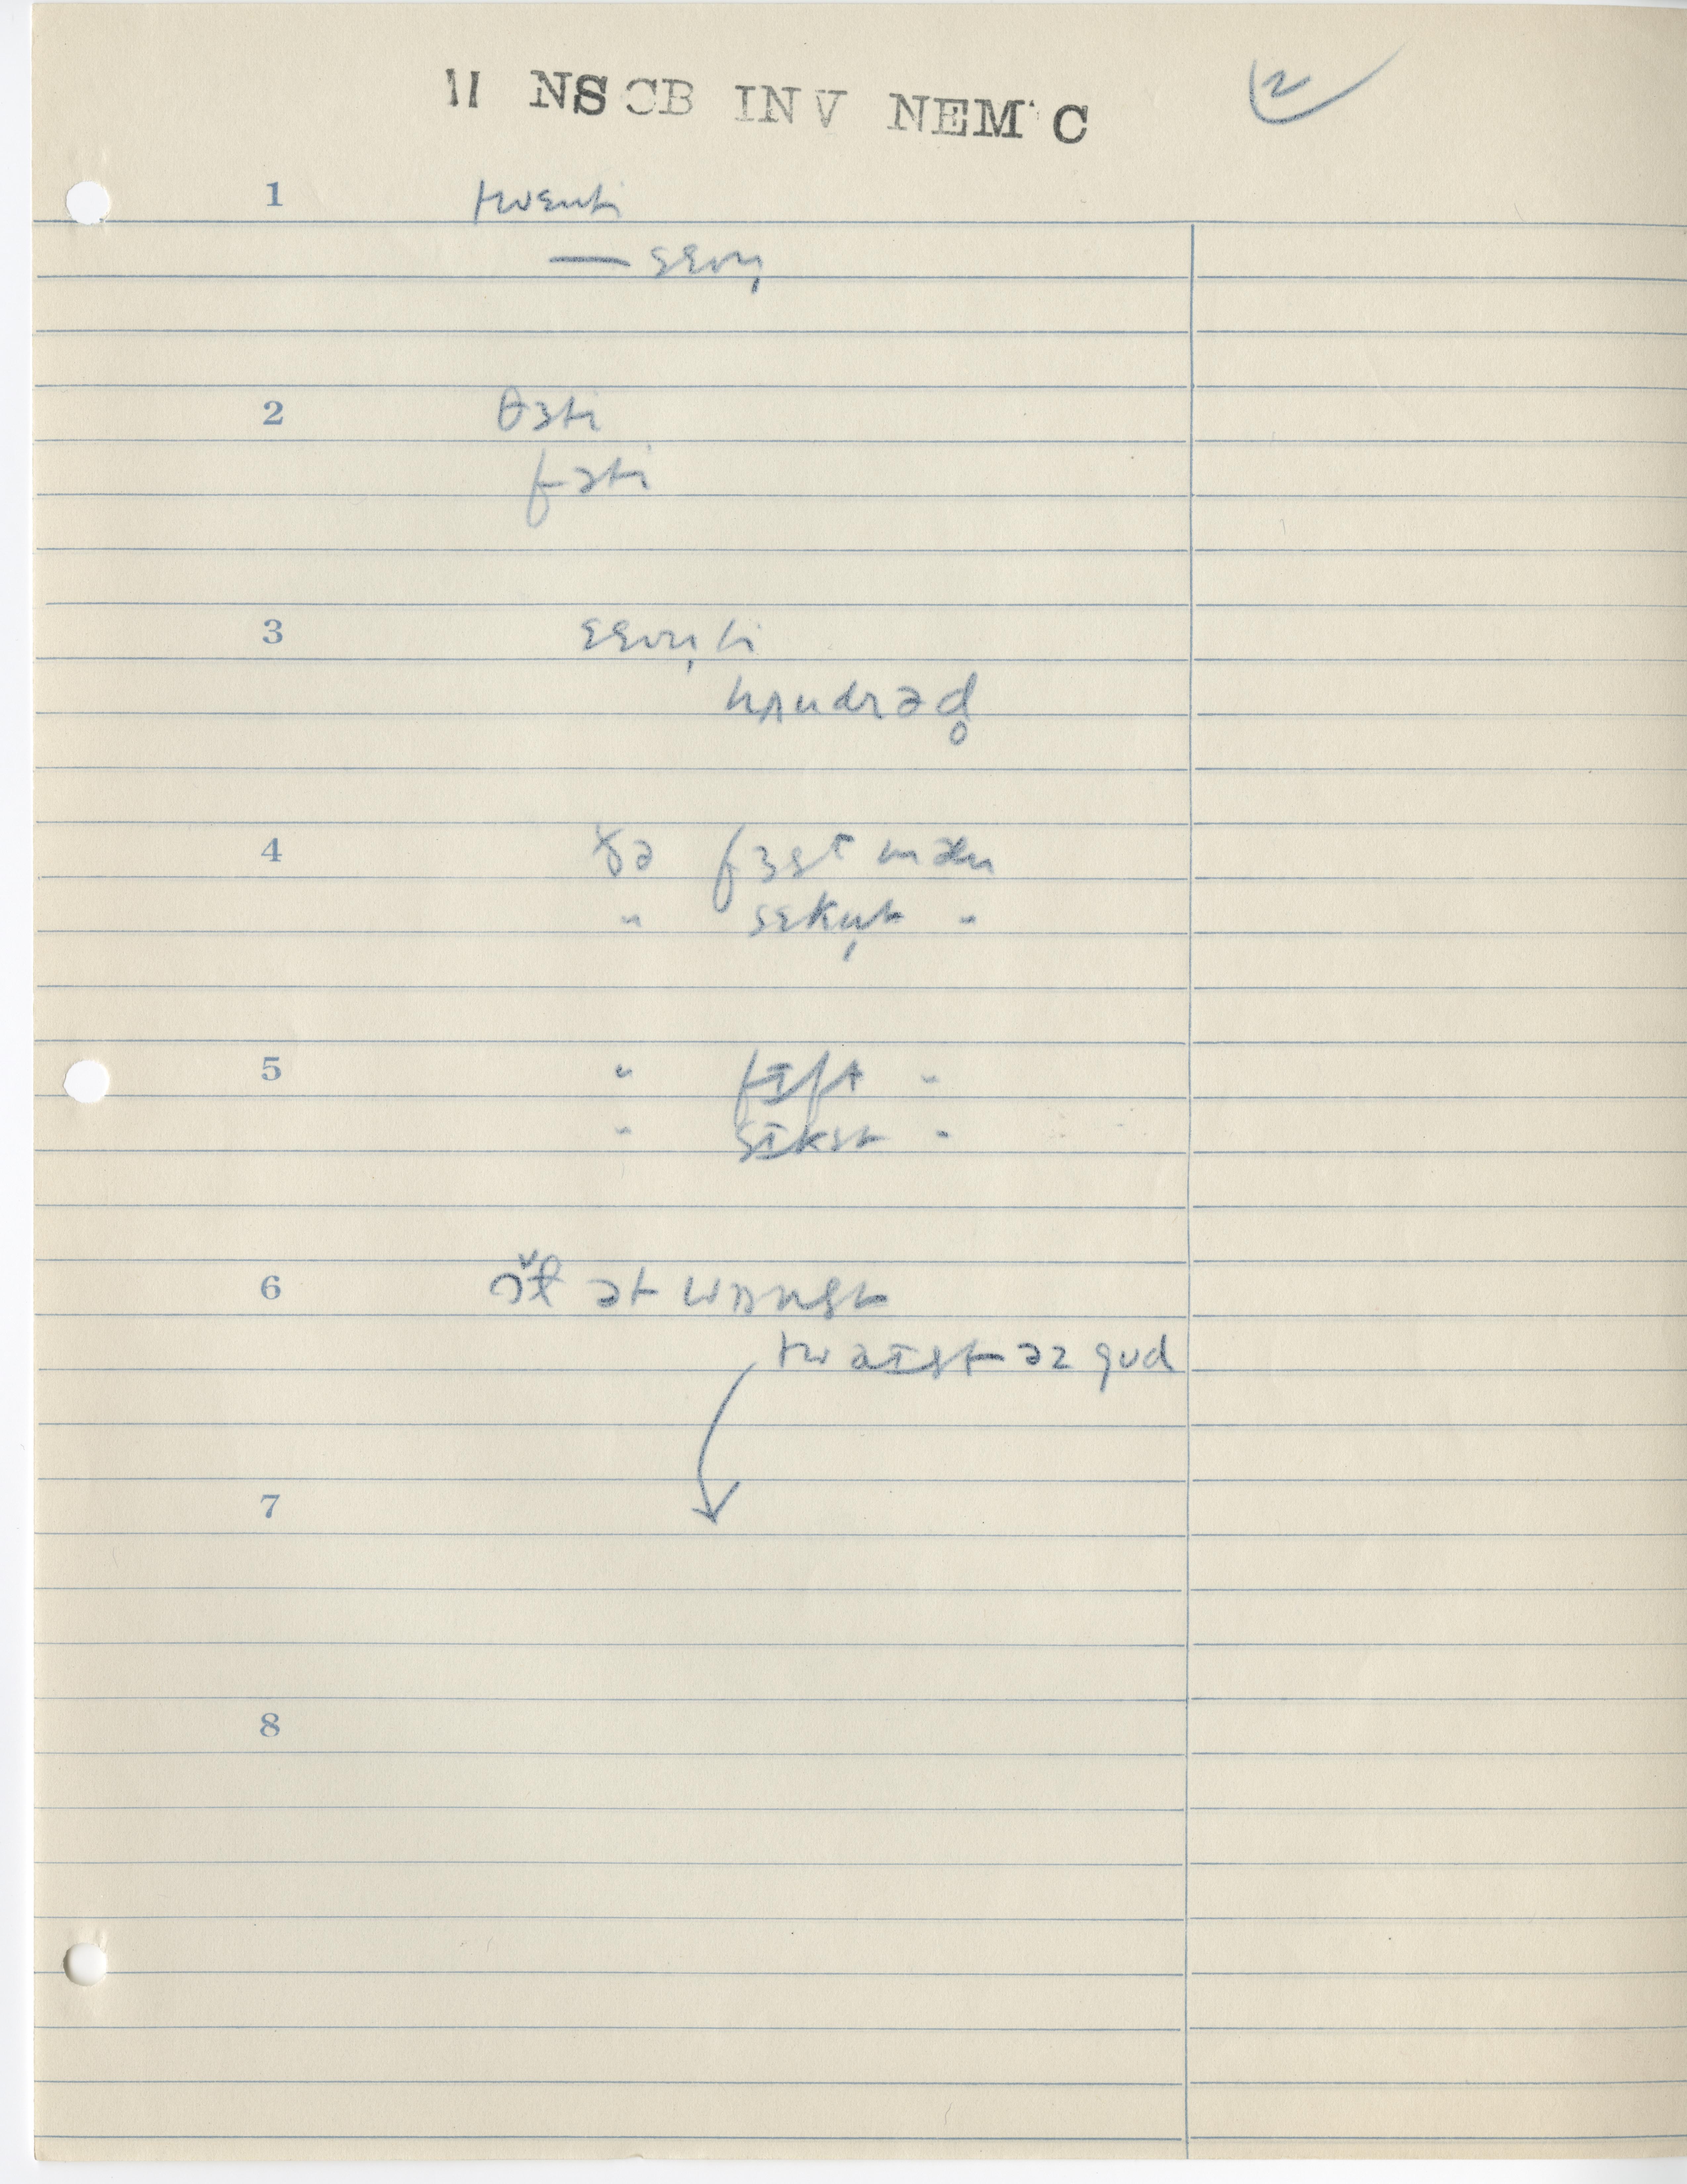 11 NSCB INV NEM'C 2
1 twɛnti
— sɛvn̩
2 θɜti
fɔti
3 sɛvn̩ti
hʌndrəd̥
4 ðə fɜst mæn
" sɛkn̩t "
5 " fɪft "
" sɪkst "
6 ɔ̌ɫ ət wʌnst
twaɪst əz gʊd
7
8